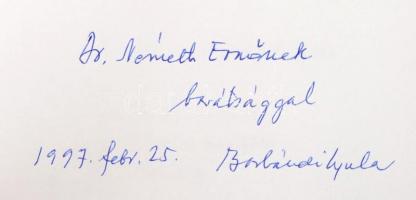 Dr. Németh Ernőnek
barátsággal
1997. febr. 25. Borbándi Gyula